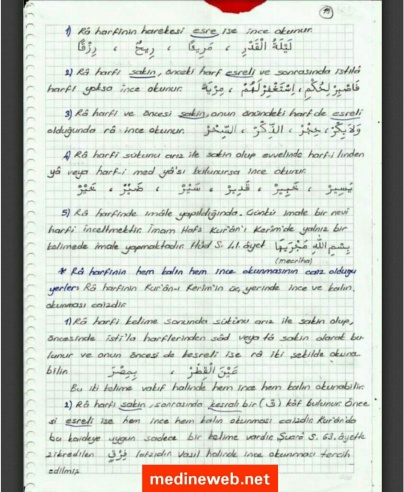 1) Râ harfinin harekesi esre ise ince okunur.
لَيْلَةُ الْقَدْرِ ، مَرِيضًا ، رِيحٌ ، رِزْقًا
2) Râ harfi sakin, önceki harf esreli ve sonrasında istilâ
harfi yoksa ince okunur. فَاصْبِرْ لِحُكْمِ ، اِسْتَغْفِرْ لَهُمْ ، مِرْيَةٍ
3) Râ harfi ve öncesi sakin, onun önündeki harf de esreli
olduğunda râ ince okunur. وَلَا بِكْرٌ ، حِجْرٌ ، الذِّكْرُ ، السِّحْرُ
4) Râ harfi sükunu arız ile sakin olup evvelinde harf-i linden
yâ veya harf-i med yâ'sı bulunursa ince okunur.
يَسِيرٌ ، خَبِيرٌ ، قَدِيرٌ ، سَيْرٌ ، ضَيْرٌ ، خَيْرٌ
5) Râ harfinde imâle yapıldığında. Çünkü imale bir nevi
harfi inceltmektir. İmam Hafs Kur'ân'ı Kerim'de yalnız bir
kelimede imale yapmaktadır. Hûd S. 41. âyet بِسْمِ اللّٰهِ مَجْرٰۭيهَا
(mecriha)
* Râ harfinin hem kalın hem ince okunmasının caiz olduğu
yerler: Râ harfinin Kur'ân-ı Kerîm'in üç yerinde ince ve kalın,
okunması caizdir.
1) Râ harfi kelime sonunda sükûnu arız ile sakin olup,
öncesinde isti'la harflerinden sâd veya tâ sakin olarak bu-
lunur ve onun öncesi de kesreli ise râ iki şekilde okuna
bilir. عَيْنَ الْقِطْرِ ، بِمِصْرَ
Bu iki kelime vakıf halinde hem ince hem kalın okunabilir.
2) Râ harfi sakin, sonrasında kesreli bir (ق) kâf bulunur. Önce
si esreli ise hem ince hem kalın okunması caizdir. Kur'ân'da
bu kaideye uygun sadece bir kelime vardır. Şuarâ S. 63. âyette
zikredilen فِرْقٍ lafzıdır. Vasıl halinde ince okunması tercih
edilmiş
medineweb.net